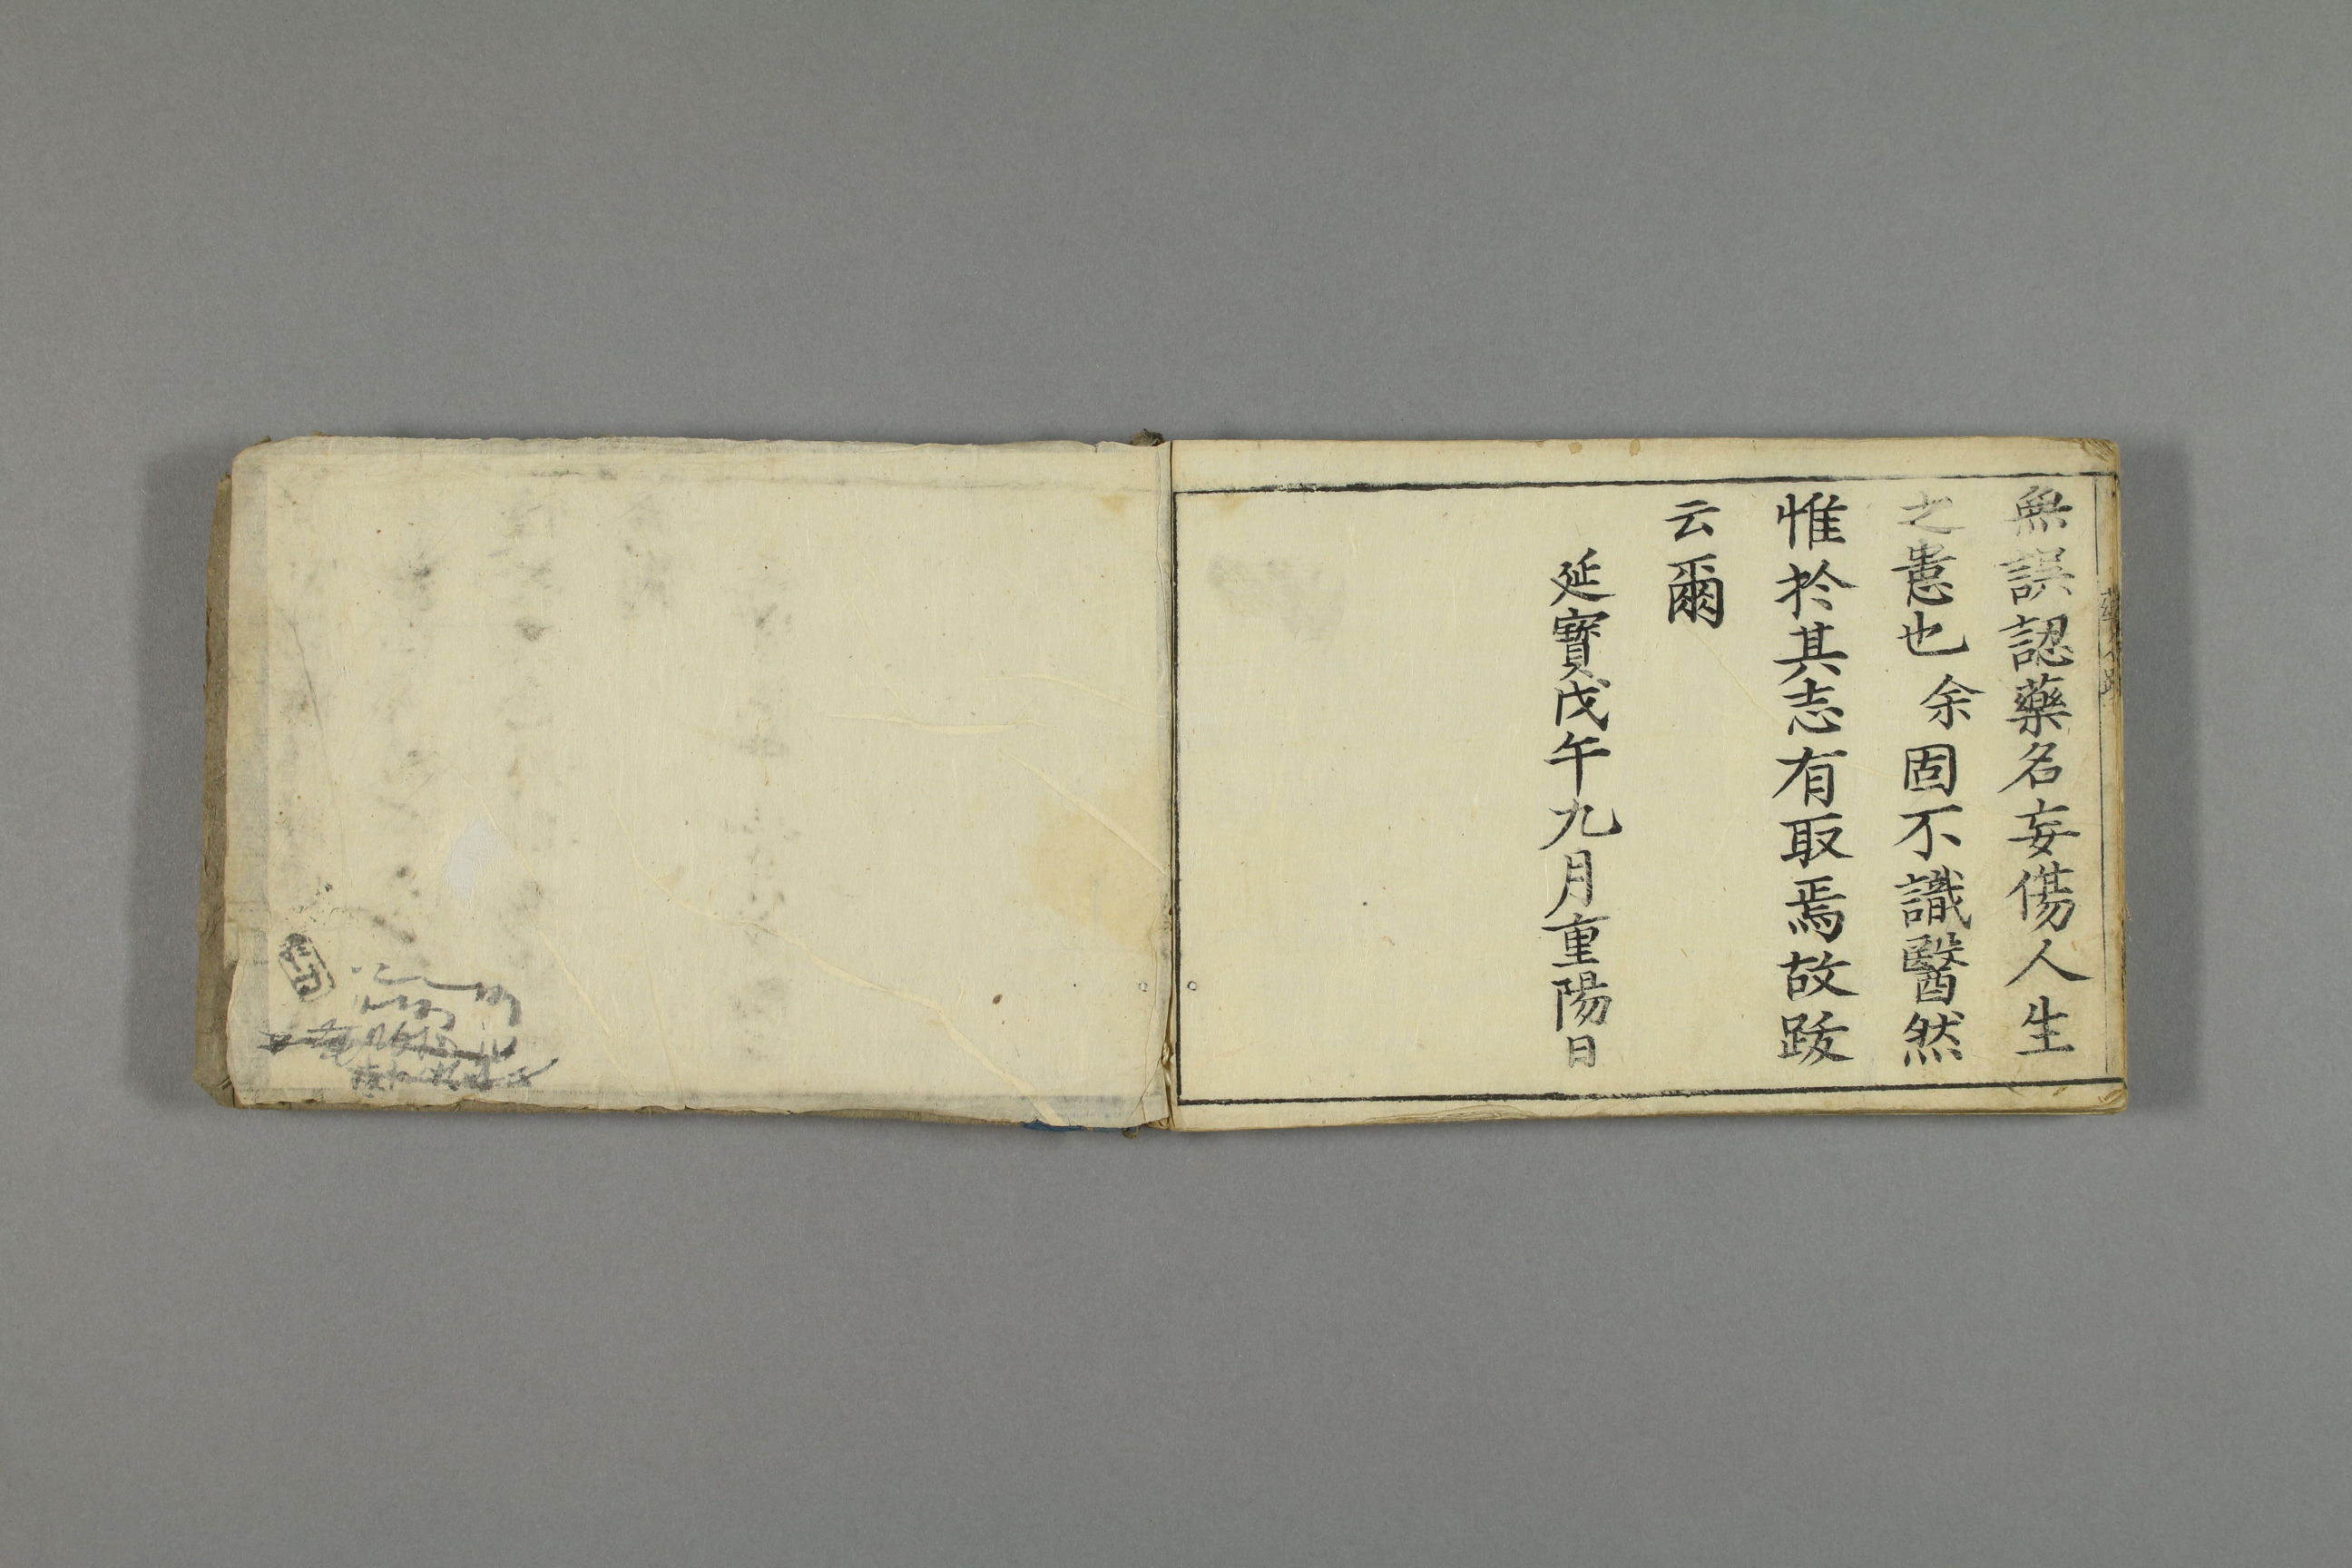 無誤認藥名妄傷人生
之患也余固不識醫然
惟於其志有取焉故跋
云爾
延寶戊午九月重陽日